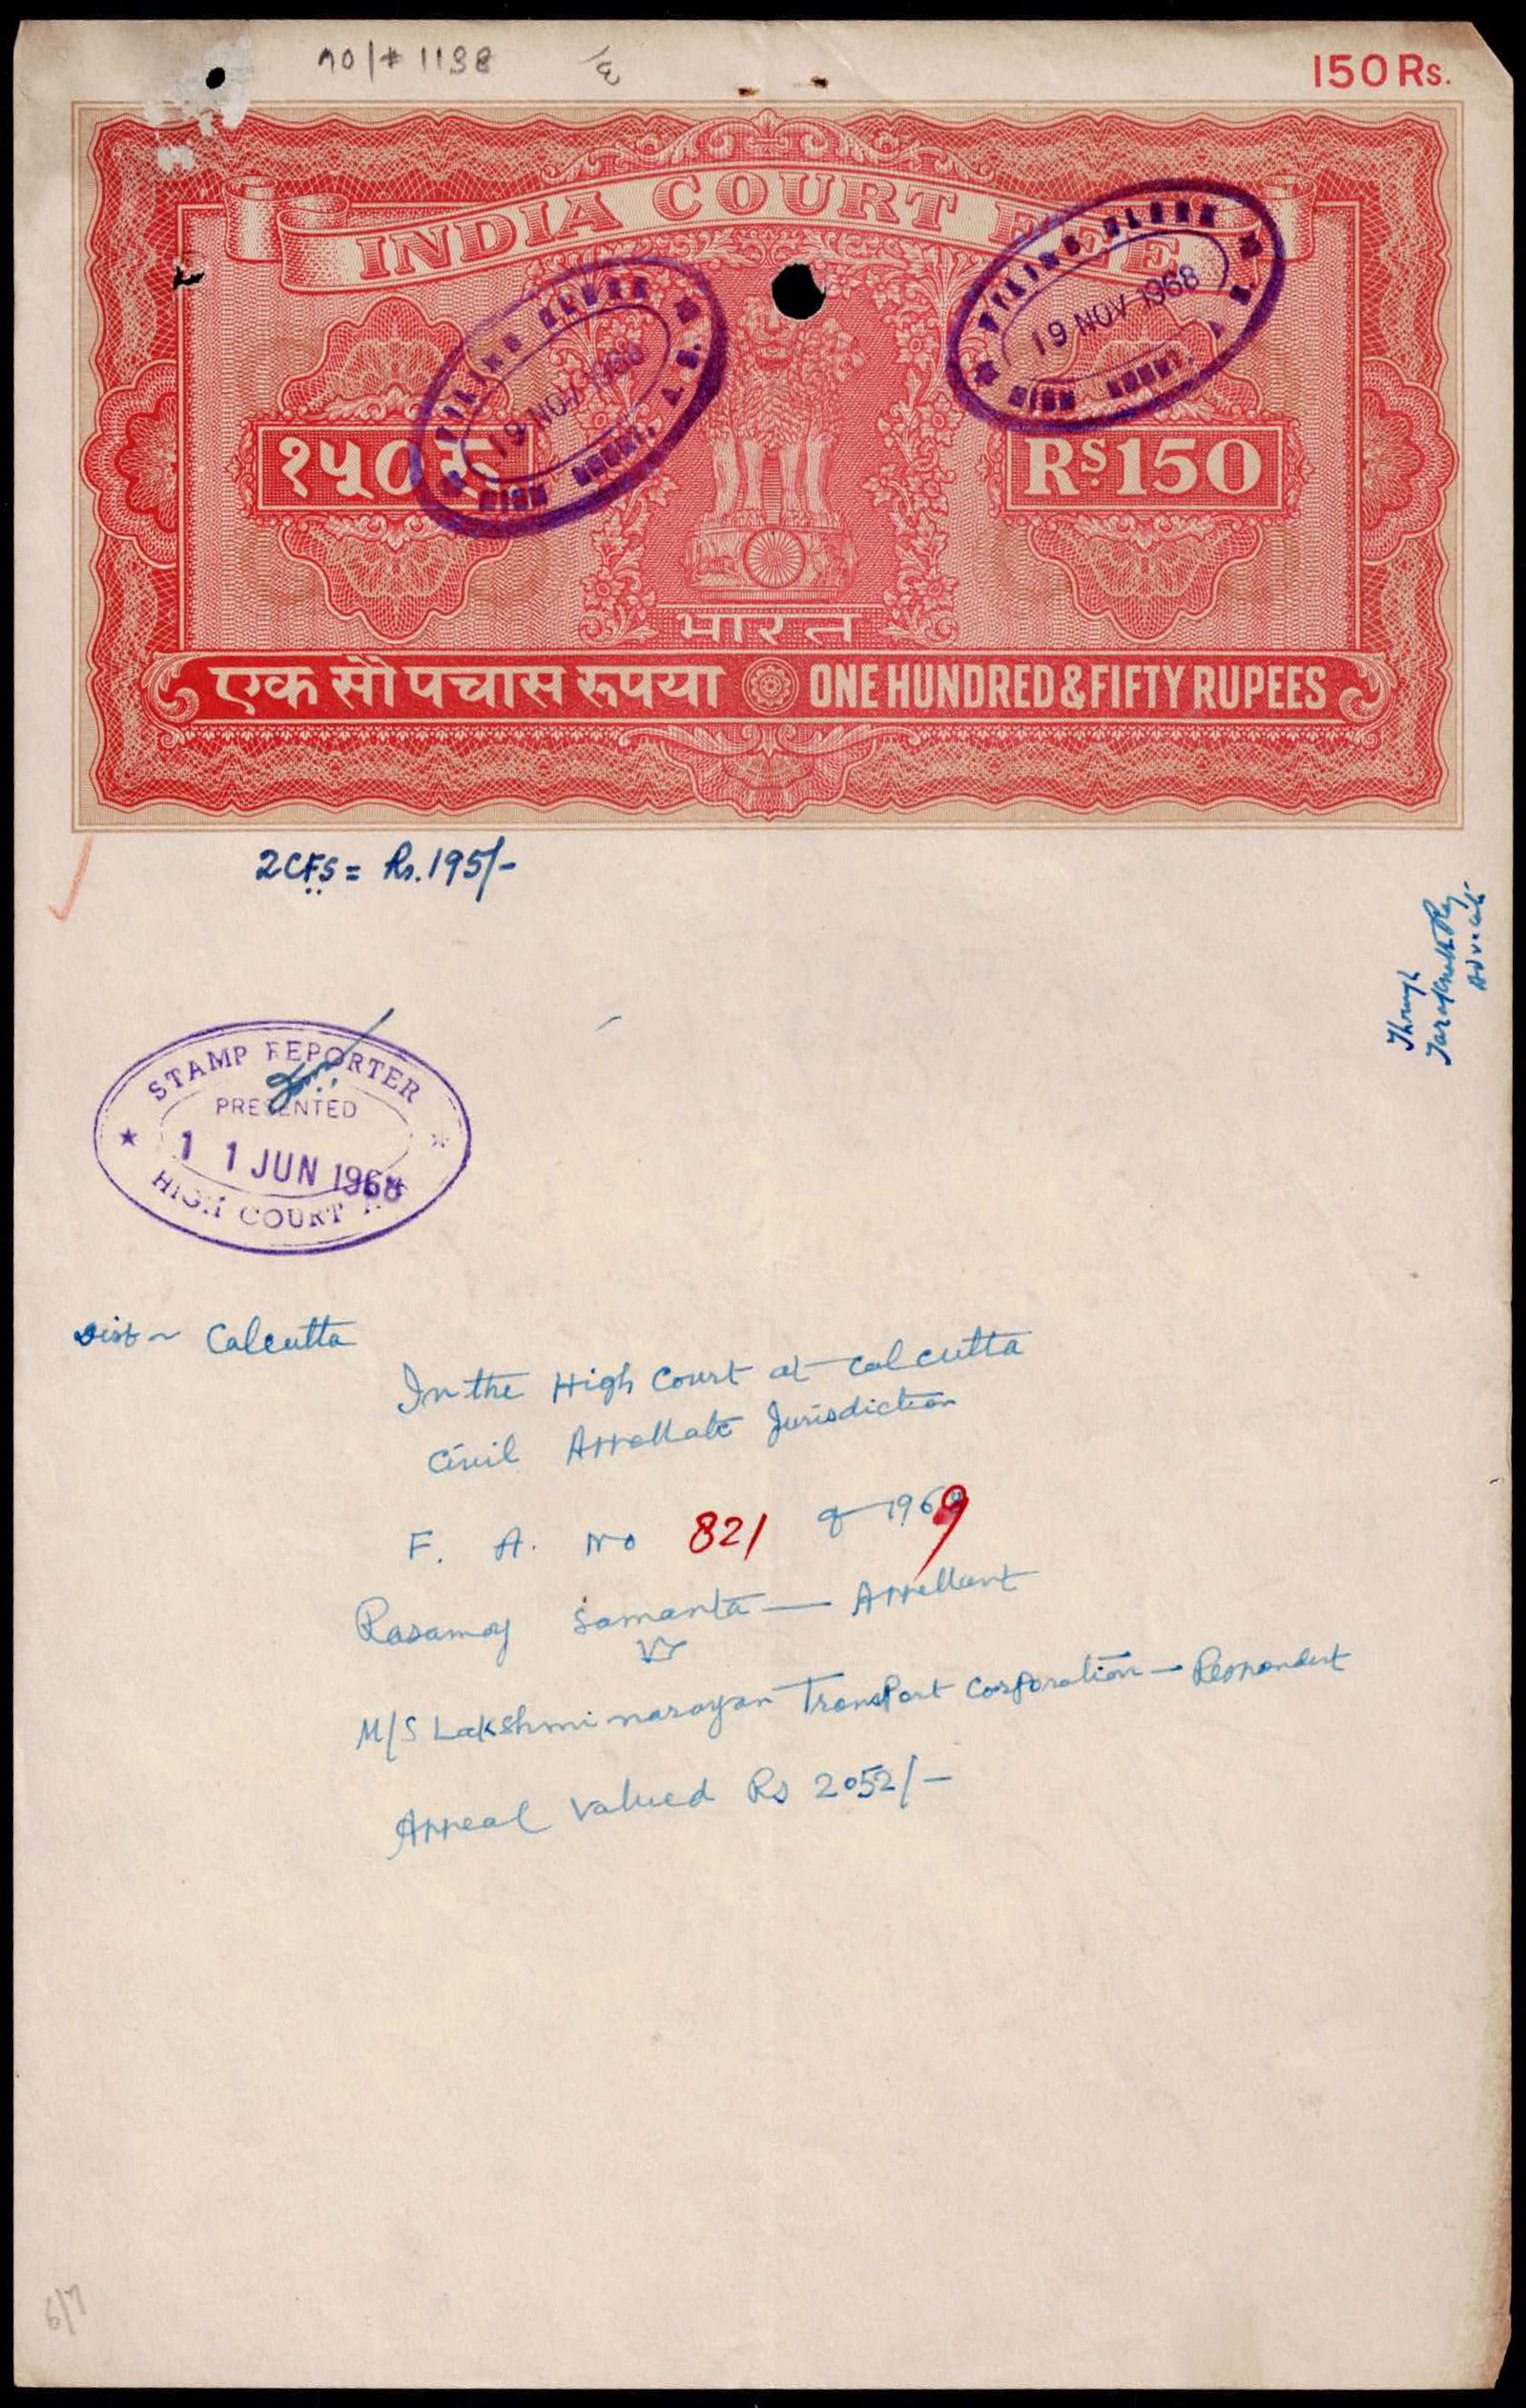 1198
150 Rs.
INDIA COURT FEE
FILING CLERK
19 NOV 1968
HIGH COURT, A. S.
FILING CLERK
19 NOV 1968
HIGH COURT, A. S.
१५० रु
Rs. 150
भारत
एक सौ पचास रूपया ONE HUNDRED & FIFTY RUPEES
2 CFS = Rs. 195/-
Through
Advocate
STAMP REPORTER
PRESENTED
11 JUN 1968
HIGH COURT
Dist ~ Calcutta
In the High Court at Calcutta
Civil Appellate Jurisdiction
F. A. No 821 of 1969
Rasamoy Samanta — Appellant
Vs
M/S Lakshminarayan Transport Corporation — Respondent
Appeal Valued Rs 2052/-
6/7